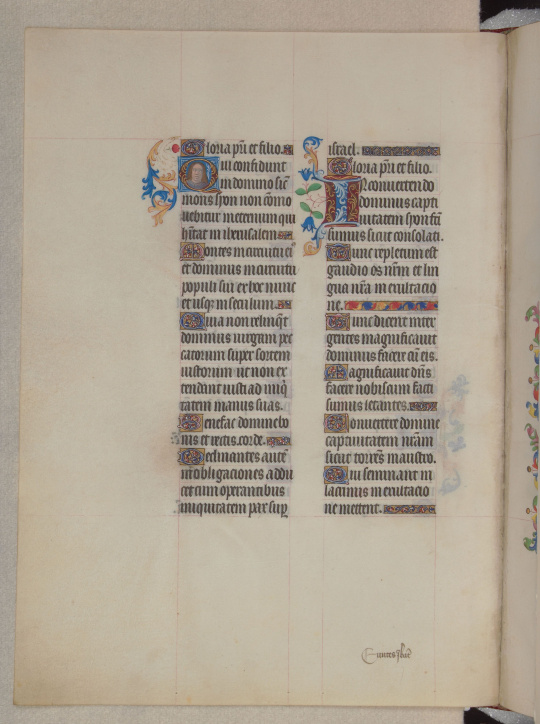 Gloria pri et filio.
Qui confidunt
in domino sic
mons syon non com̄o
uebitur in eternum qui
hītat in iherusalem
Montes in circuitu ei
et dominus in circuitu
populi sui ex hoc nunc
et usqꝫ in seculum.
Quia non relinqt
dominus uirgam pec
catorum super sortem
iustorum ut non ex
tendant iusti ad iniq
tatem manus suas.
Benefac domine bo
nis et rectis corde.
Declinantes autē
in obligaciones addu
cet cum operantibus
iniquitatem pax sup
israel.
Gloria pri et filio.
In conuertendo
dominus capti
uitatem syon fā
sumus sicut consolati.
Tunc repletum est
gaudio os nrm et lin
gua nrā in exultacio
ne.
Tunc dicent inter
gentes magnificauit
dominus facere cū eis.
Magnificauit dns
facere nobiscum facti
sumus letantes.
Conuertere domine
captiuitatem nrām
sicut torrēs in austro.
Qui seminant in
lacrimis in exultacio
ne metent.
Euntes